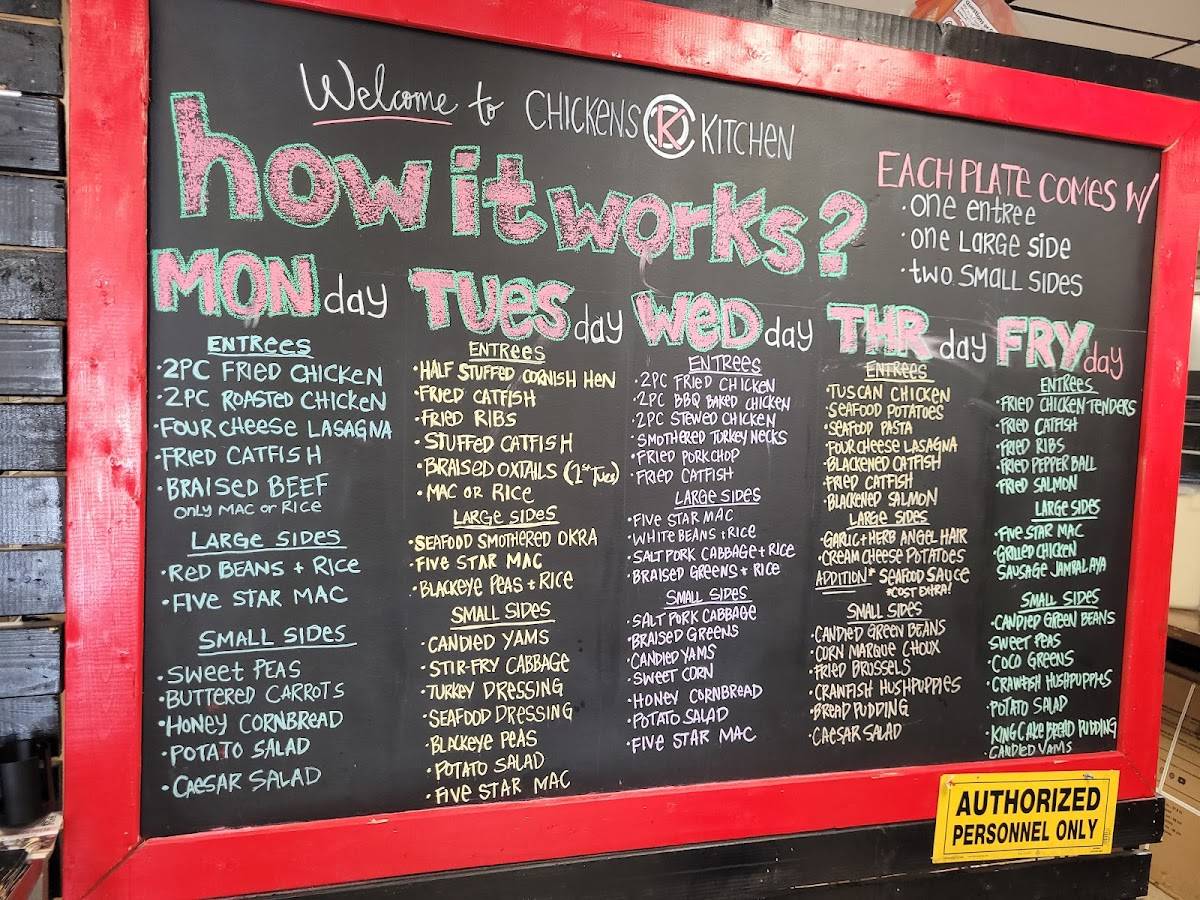 Welcome to CHICKENS CK KITCHEN
how it works?
EACH PLATE COMES W/
· one entree
· one LARGE SIDE
· two SMALL SIDES
MONday
ENTREES
· 2PC FRIED CHICKEN
· 2PC ROASTED CHICKEN
· FOUR CHEESE LASAGNA
· FRIED CATFISH
· BRAISED BEEF
ONLY MAC or RICE
LARGE SIDES
· RED BEANS + RICE
· FIVE STAR MAC
SMALL SIDES
· SWEET PEAS
· BUTTERED CARROTS
· HONEY CORNBREAD
· POTATO SALAD
· CAESAR SALAD
TUESday
ENTREES
· HALF STUFFED CORNISH HEN
· FRIED CATFISH
· FRIED RIBS
· STUFFED CATFISH
· BRAISED OXTAILS (1st Tues)
· MAC OR RICE
LARGE SIDES
· SEAFOOD SMOTHERED OKRA
· FIVE STAR MAC
· BLACKEYE PEAS + RICE
SMALL SIDES
· CANDIED YAMS
· STIR-FRY CABBAGE
· TURKEY DRESSING
· SEAFOOD DRESSING
· BLACKEYE PEAS
· POTATO SALAD
· FIVE STAR MAC
WEDday
ENTREES
· 2PC FRIED CHICKEN
· 2PC BBQ BAKED CHICKEN
· 2PC STEWED CHICKEN
· SMOTHERED TURKEY NECKS
· FRIED PORKCHOP
· FRIED CATFISH
LARGE SIDES
· FIVE STAR MAC
· WHITE BEANS + RICE
· SALT PORK CABBAGE + RICE
· BRAISED GREENS + RICE
SMALL SIDES
· SALT PORK CABBAGE
· BRAISED GREENS
· CANDIED YAMS
· SWEET CORN
· HONEY CORNBREAD
· POTATO SALAD
· FIVE STAR MAC
THRday
ENTREES
· TUSCAN CHICKEN
· SEAFOOD POTATOES
· SEAFOOD PASTA
· FOUR CHEESE LASAGNA
· BLACKENED CATFISH
· FRIED CATFISH
· BLACKENED SALMON
LARGE SIDES
· GARLIC + HERB ANGEL HAIR
· CREAM CHEESE POTATOES
ADDITION* SEAFOOD SAUCE
*COST EXTRA!
SMALL SIDES
· CANDIED GREEN BEANS
· CORN MARQUE CHOUX
· FRIED BRUSSELS
· CRAWFISH HUSHPUPPIES
· BREAD PUDDING
· CAESAR SALAD
FRYday
ENTREES
· FRIED CHICKEN TENDERS
· FRIED CATFISH
· FRIED RIBS
· FRIED PEPPER BALL
· FRIED SALMON
LARGE SIDES
· FIVE STAR MAC
· GRILLED CHICKEN
SAUSAGE JAMBALAYA
SMALL SIDES
· CANDIED GREEN BEANS
SWEET PEAS
· COCO GREENS
· CRAWFISH HUSHPUPPIES
· POTATO SALAD
· KING CAKE BREAD PUDDING
· CANDIED YAMS
AUTHORIZED
PERSONNEL ONLY